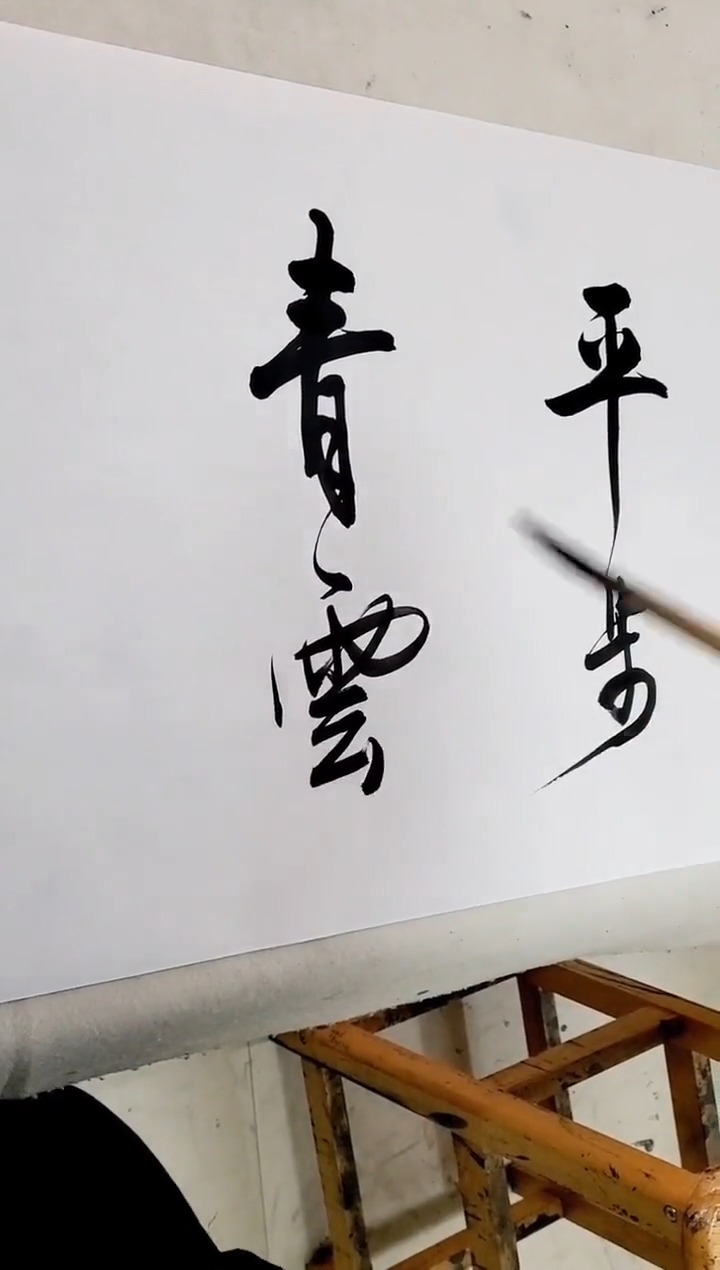 平步
青雲